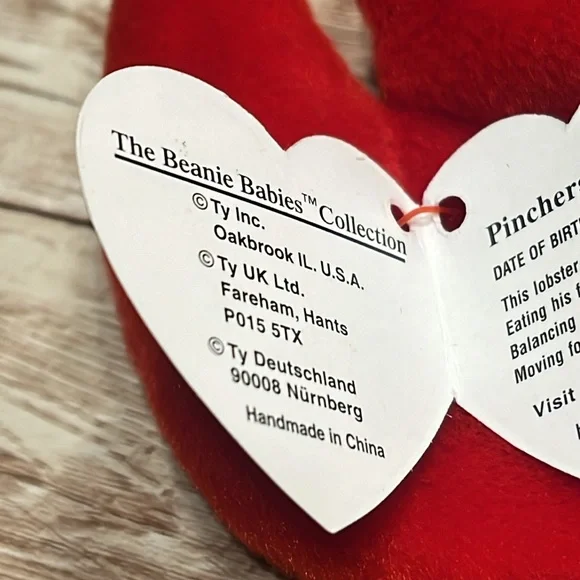 The Beanie Babies™ Collection
©Ty Inc.
Oakbrook IL. U.S.A.
©Ty UK Ltd.
Fareham, Hants
P015 5TX
©Ty Deutschland
90008 Nürnberg
Handmade in China
Pinchers
DATE OF BIRT
This lobster
Eating his f
Balancing
Moving fo
Visit